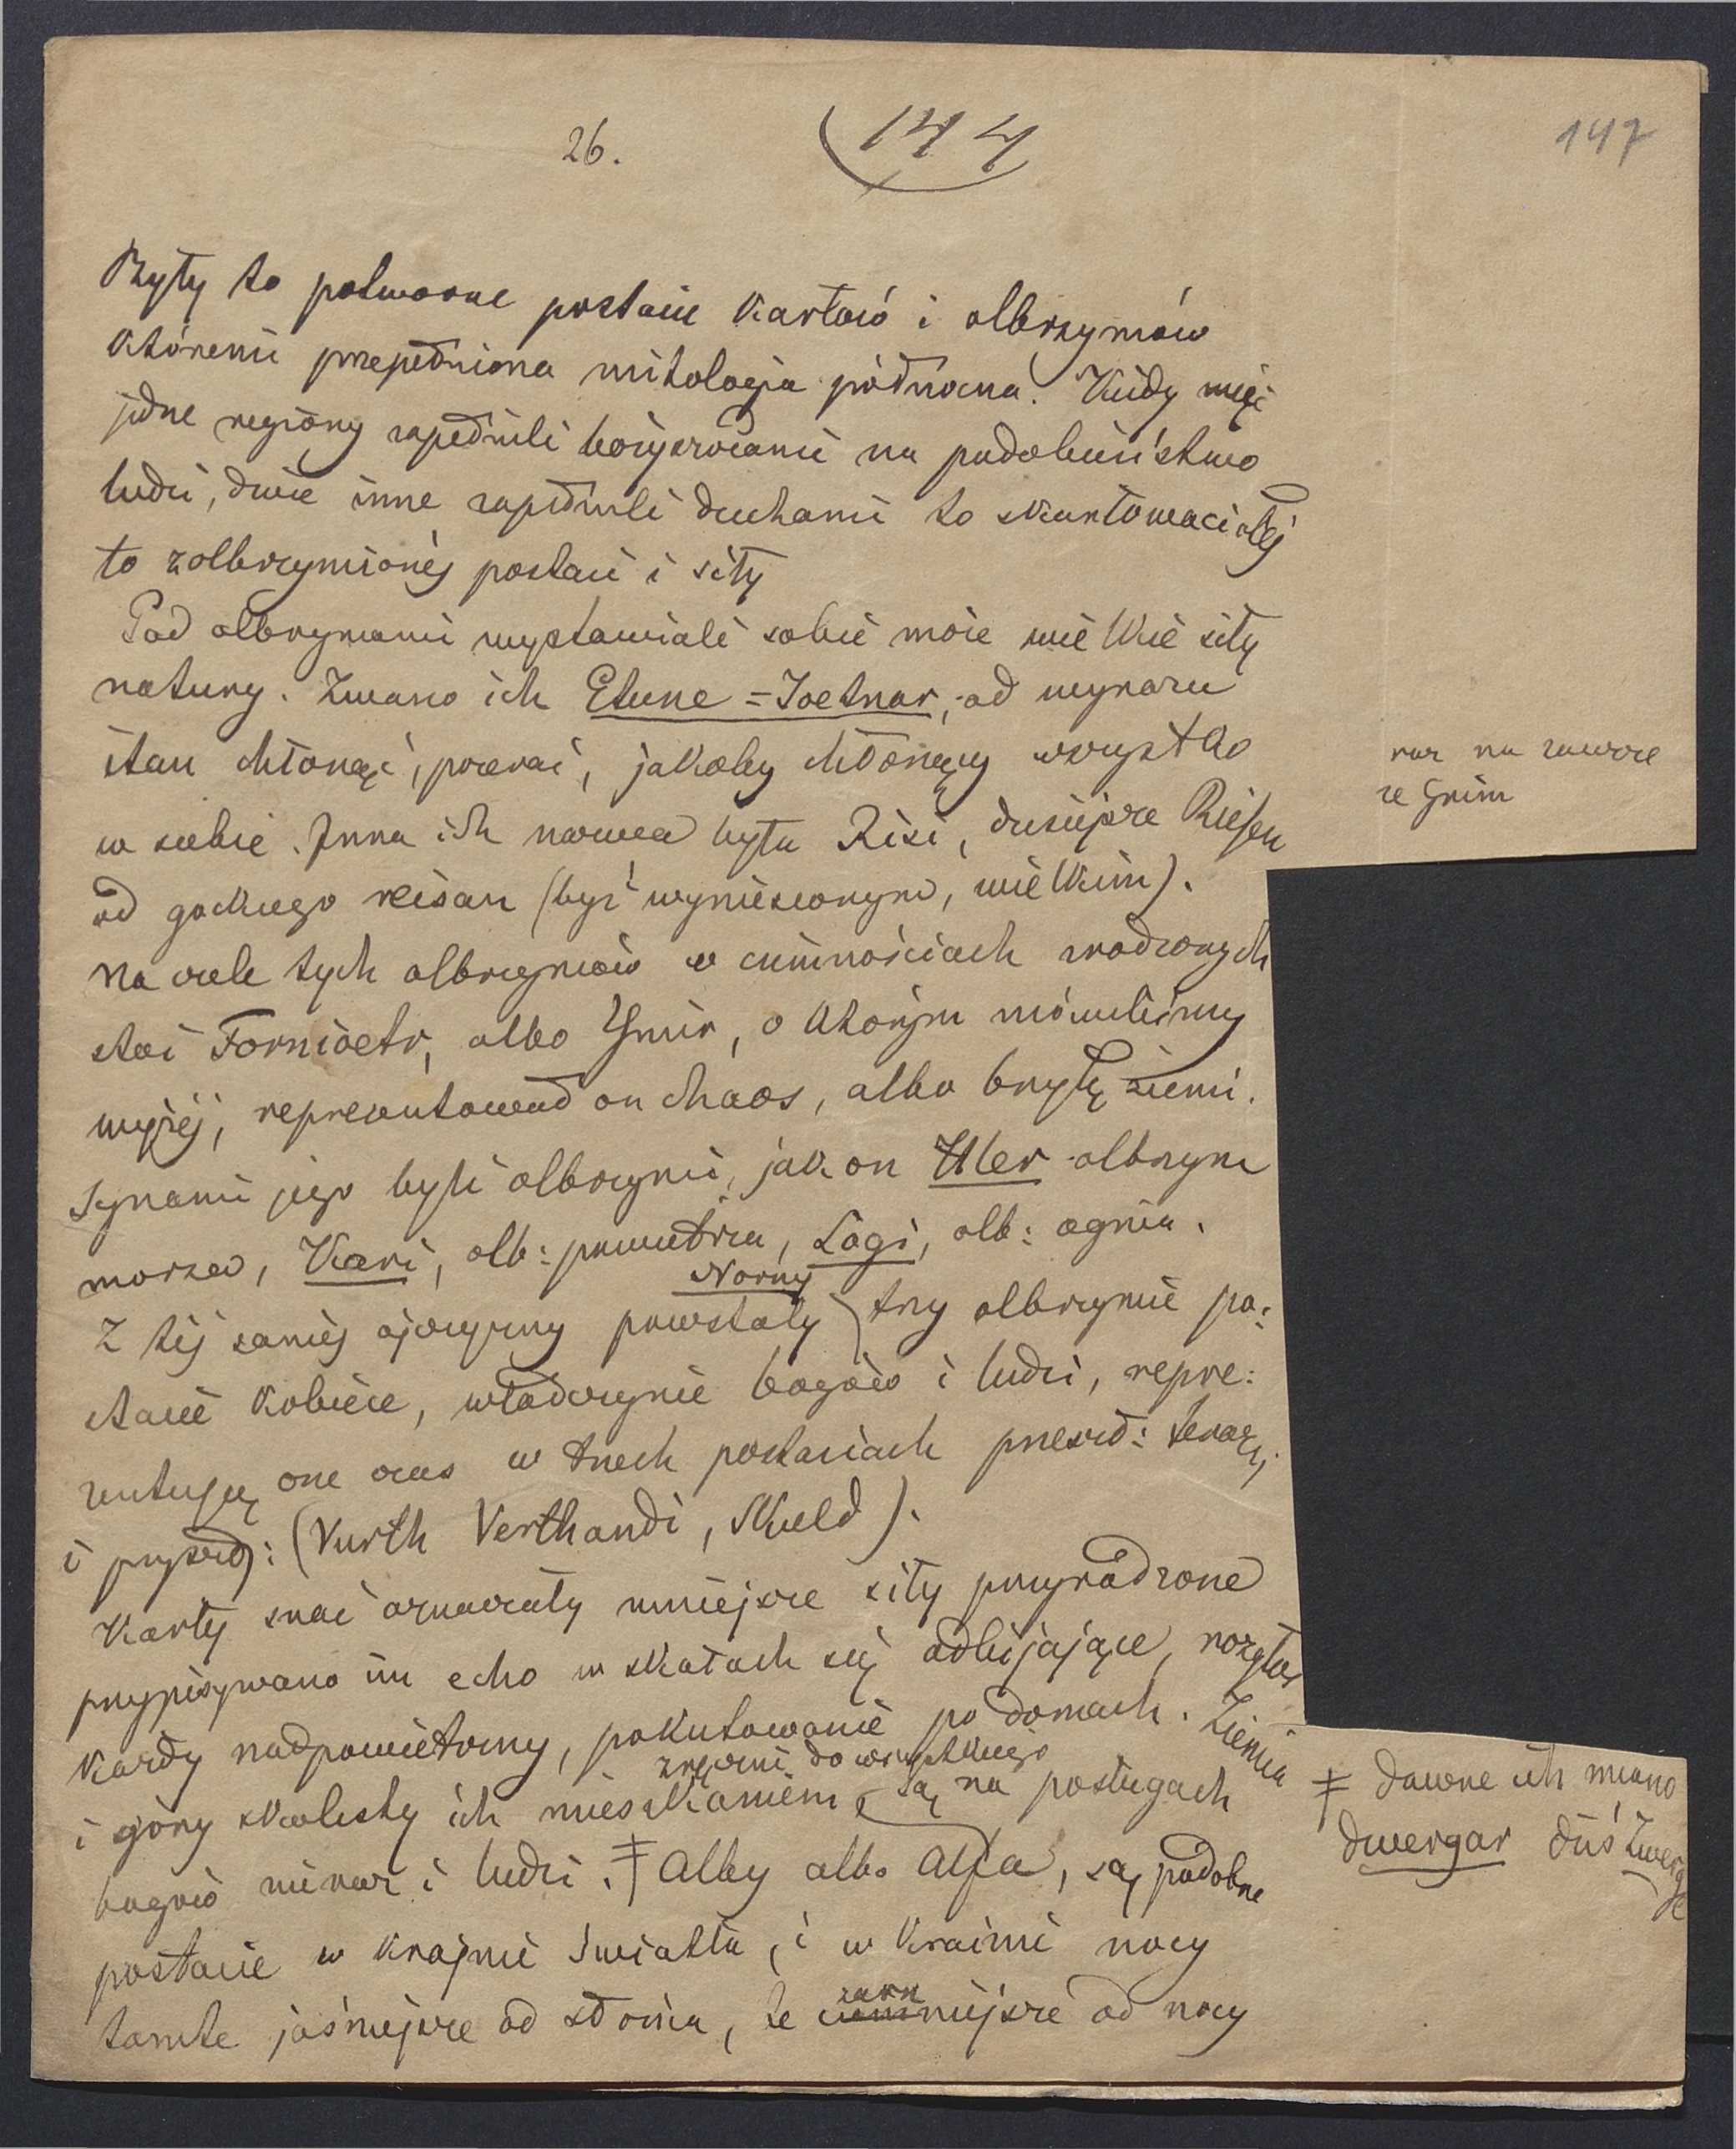 26.
144
147
Były to potworne postacie Karłów i olbrzymów
któremi przepełniona mitologia północna. Kiedy więc
jedne regiony zapełnili bożyszczami na podobieństwo
ludzi, dwie inne zapełnili duchami to skarłowaciałej
to zolbrzymionéj postaci i siły
Pod olbrzymami wystawiali sobie może wielkie siły
natury. Zwano ich Etune = Joetnar, od wyrazu
itan chłonąć, pożerać, jakoby chłonący wszystko
w siebie. Inna ich nazwa była Risi, dzisiejsze Riesen
od gockiego reisan (być wyniesionym, wielkim).
na czele tych olbrzymów w ciemnościach zrodzonych
stoi Fornioetr, albo Ymir, o którym mówiliśmy
wyżéj, reprezentował on chaos, albo bryłę ziemi.
Synami jego byli olbrzymi, jak on Hler olbrzym
morza, Kari, olb: powietrza, Logi, olb: ognia.
Z téj saméj ojczyzny powstały Norny trzy olbrzymie po:
stacie Kobiéce, władczynie bogów i ludzi, repre:
zentują one czas w trzech postaciach przeszł: teraz:
i przyszł: (Vurth Verthandi, Skuld).
Karły snać oznaczały mniejsze siły przyrodzone
przypisywano im echo w skałach się odbijające, rozgłos
Każdy nadpowietrzny, pokutowanie po domach. Ziemia
i góry skalisty ich mieszkaniem, zręczni do wszystkiego są na posługach
bogów nieraz i ludzi. ‡ Alby albo Alfa, są podobne
postacie w krajnie światła, i w krainie nocy
tamte jaśniejsze od słońca, te czarniejsze od nocy
raz na zawsze
ze Grim
‡ dawne ich miano
dwergar dziś Zwerge